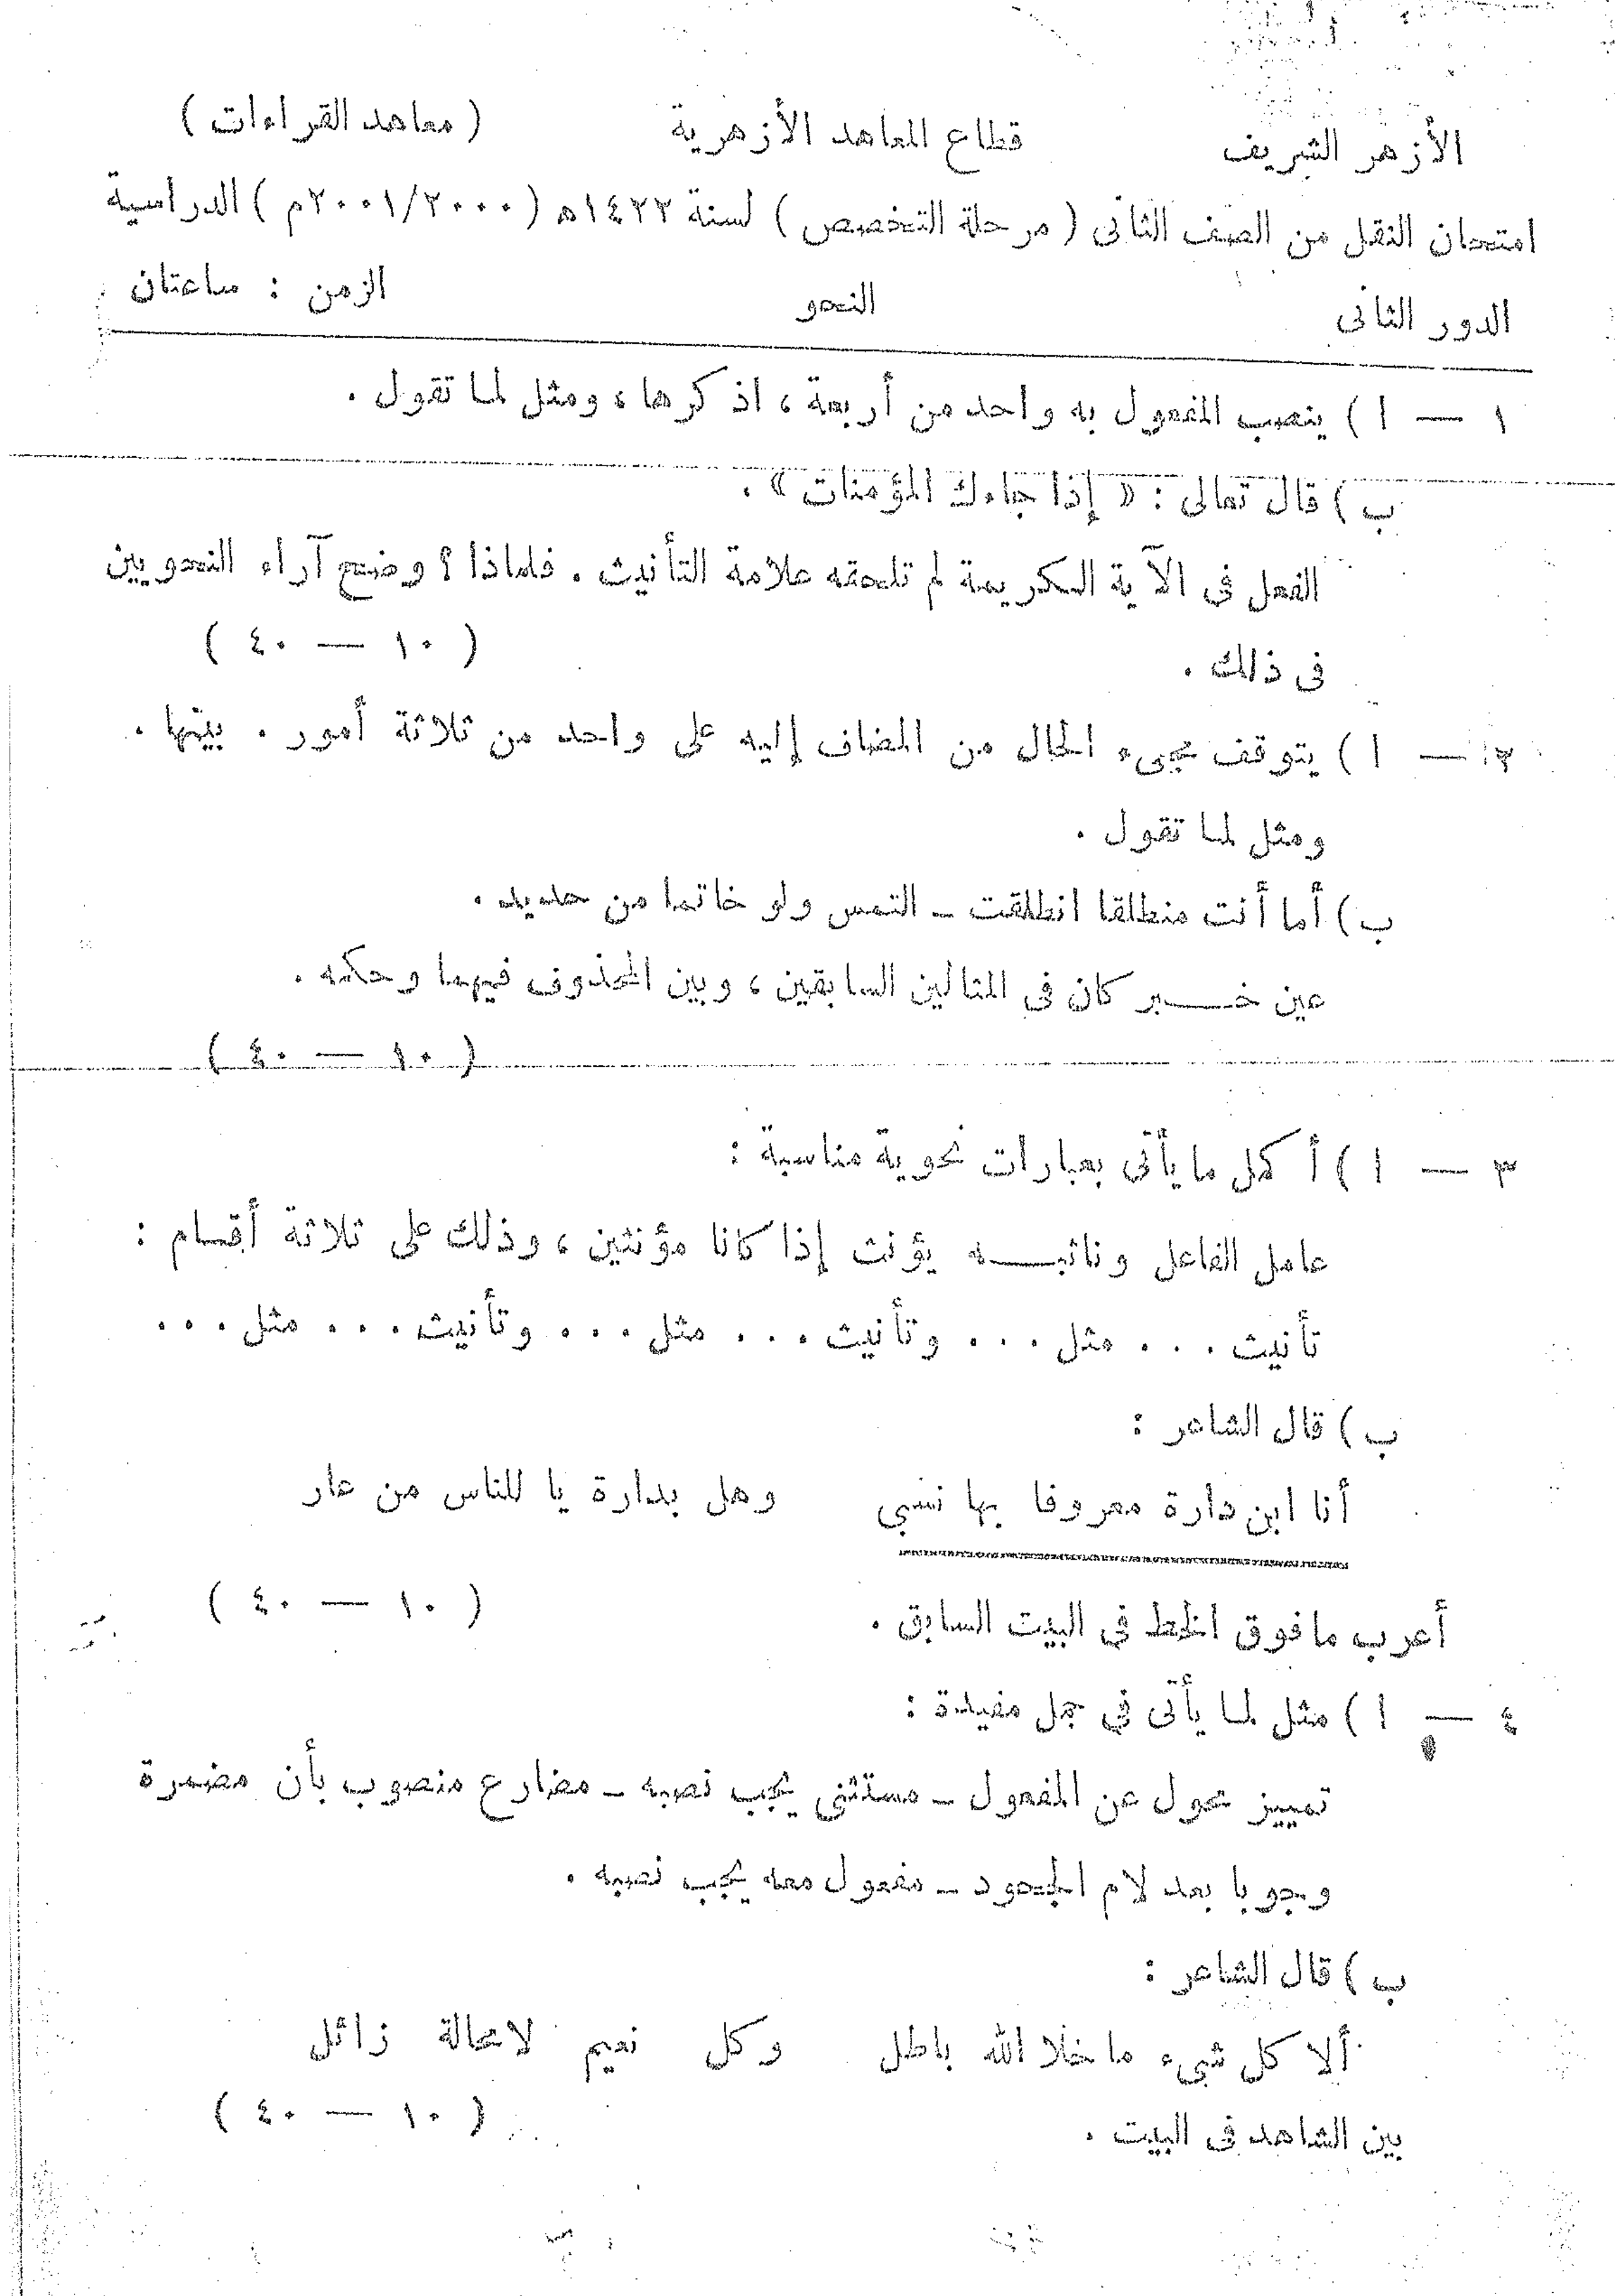 الأزهر الشريف قطاع المعاهد الأزهرية ( معاهد القراءات )
امتحان النقل من الصف الثانى ( مرحلة التخصص ) لسنة ١٤٢٢ه ( ٢٠٠١/٢٠٠٠م ) الدراسية
الدور الثانى النحو الزمن : ساعتان
١ — ا ) ينصب المفعول به واحد من أربعة ، اذكرها ، ومثل لما تقول .
ب ) قال تعالى : « إذا جاءك المؤمنات » .
الفعل فى الآية الكريمة لم تلحقه علامة التأنيث . فلماذا ؟ وضح آراء النحويين
فى ذلك . ( ١٠ — ٤٠ )
٢ — ا ) يتوقف مجىء الحال من المضاف إليه على واحد من ثلاثة أمور . بيّنها .
ومثل لما تقول .
ب ) أما أنت منطلقا انطلقت – التمس ولو خاتما من حديد .
عين خبر كان فى المثالين السابقين ، وبين المحذوف فيهما وحكمه .
( ١٠ — ٤٠ )
٣ — ا ) أكمل ما يأتى بعبارات نحوية مناسبة :
عامل الفاعل ونائبه يؤنث إذا كانا مؤنثين ، وذلك على ثلاثة أقسام :
تأنيث . . . مثل . . . وتأنيث . . . مثل . . . وتأنيث . . . مثل . . .
ب ) قال الشاعر :
أنا ابن دارة معروفا بها نسبي وهل بدارة يا للناس من عار
أعرب ما فوق الخط في البيت السابق . ( ١٠ — ٤٠ )
٤ — ا ) مثل لما يأتى في جمل مفيدة :
تمييز محول عن المفعول – مستثنى يجب نصبه – مضارع منصوب بأن مضمرة
وجوبا بعد لام الجحود – مفعول معه يجب نصبه .
ب ) قال الشاعر :
ألا كل شىء ما خلا الله باطل وكل نعيم لا محالة زائل
بين الشاهد فى البيت . ( ١٠ — ٤٠ )